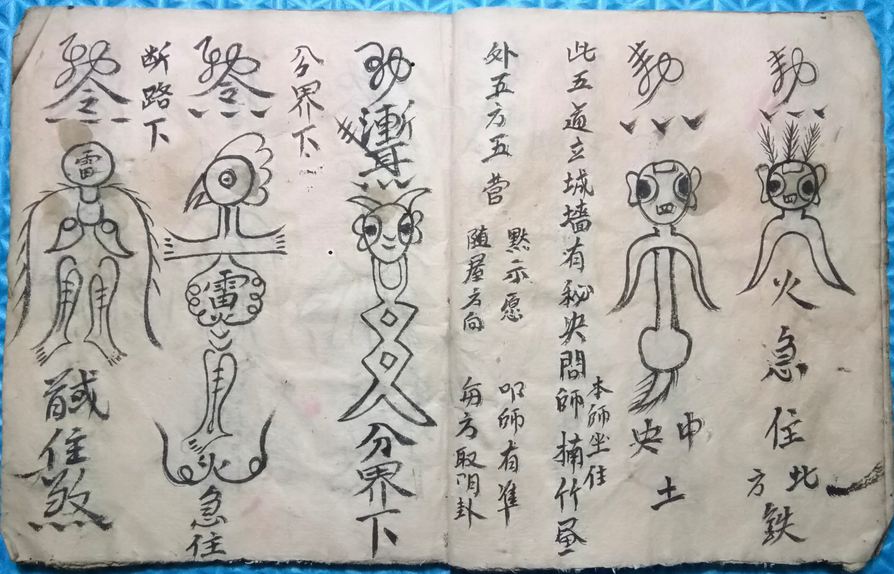 勅
火急住
北方
鉄
勅
中央
土
此五道立城墻有秘决問師
本師坐住
外五方五营
黙示愿
随屋方向
叩师有准
每方取阴卦
勅
分界下
分界下
勅令
雷火
火
急住
断路下
勅令
雷
住煞